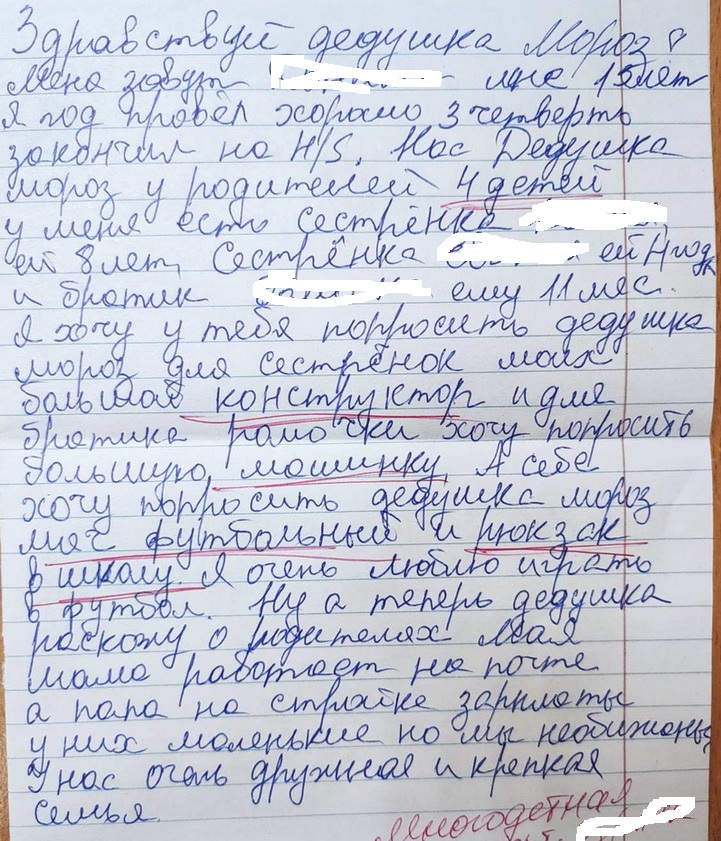 Здравствуй дедушка Мороз
Меня зовут мне 15 лет
я год провёл хорошо 3 четверть
закончил на 4/5. Нас Дедушка
мороз у родителей 4 детей
у меня есть сестрёнка
ей 8 лет, Сестрёнка ей 4 года
и братик ему 11 мес.
Я хочу у тебя попросить дедушка
мороз для сестрёнок моих
большой конструктор и для
братика хочу попросить
большую машинку А себе
хочу попросить дедушка мороз
мяч футбольный и рюкзак
в школу. Я очень люблю играть
в футбол. Ну а теперь дедушка
раскажу о родителях Моя
мама работает на почте
а папа на стройке зарплаты
у них маленькие но мы необижаны
У нас очень дружная и крепкая
семья.
Многодетная